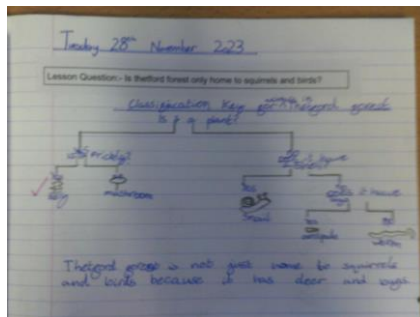 Tuesday 28th November 2023
Lesson Question:- Is thetford forest only home to squirrels and birds?
Classification Key for Thetford forest
Is it a plant?
is it prickly?
does it have
yes
mushroom
Snail
does it have
legs
yes
no
centipede
worm
Thetford forest is not just home to squirrels
and birds because it has deer and bugs